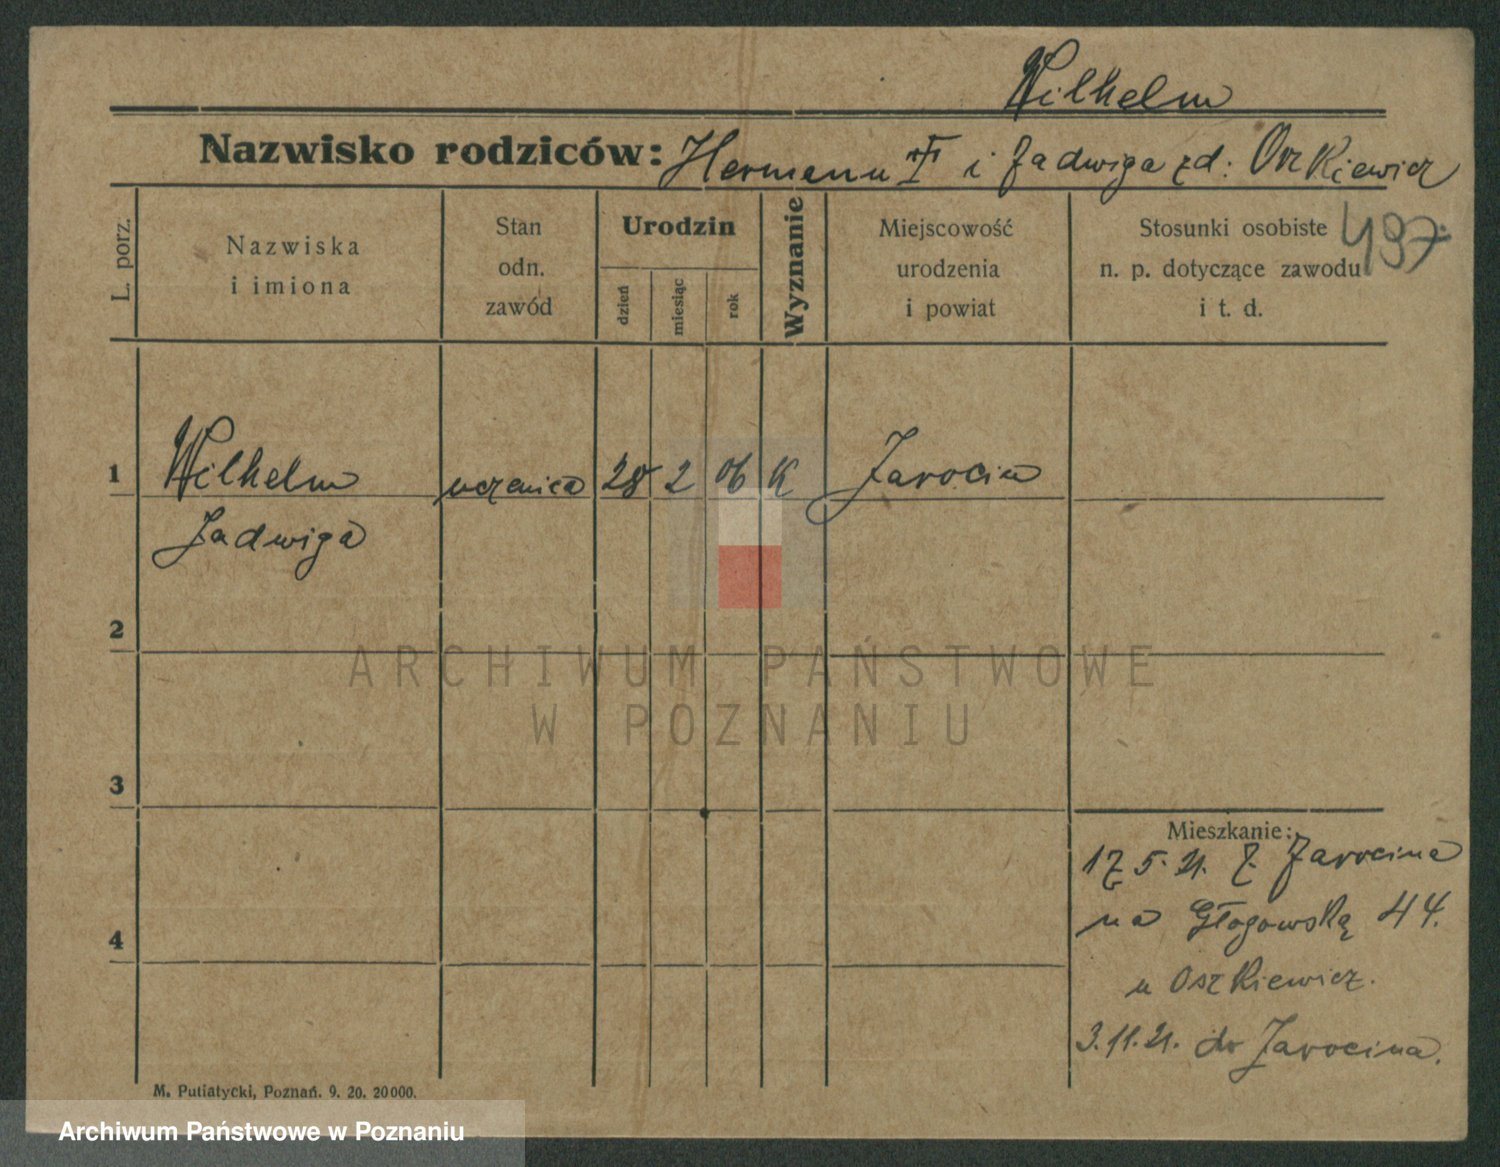 Wilhelm
Nazwisko rodziców: Hermann i Jadwiga zd: Oszkiewicz
497
L. porz.
Nazwiska
i imiona
Stan
odn.
zawód
Urodzin
dzień
miesiąc
rok
Wyznanie
Miejscowość
urodzenia
i powiat
Stosunki osobiste
n. p. dotyczące zawodu
i t. d.
1 Wilhelm uczenica 28 2 06 K Jarocin
Jadwiga
2
3
4
Mieszkanie:
17 5. 21. z Jarocina
na Głogowską 44.
u Oszkiewicz.
3.11.21. do Jarocina.
M. Putiatycki, Poznań. 9. 20. 20000.
ARCHIWUM PAŃSTWOWE
W POZNANIU
Archiwum Państwowe w Poznaniu